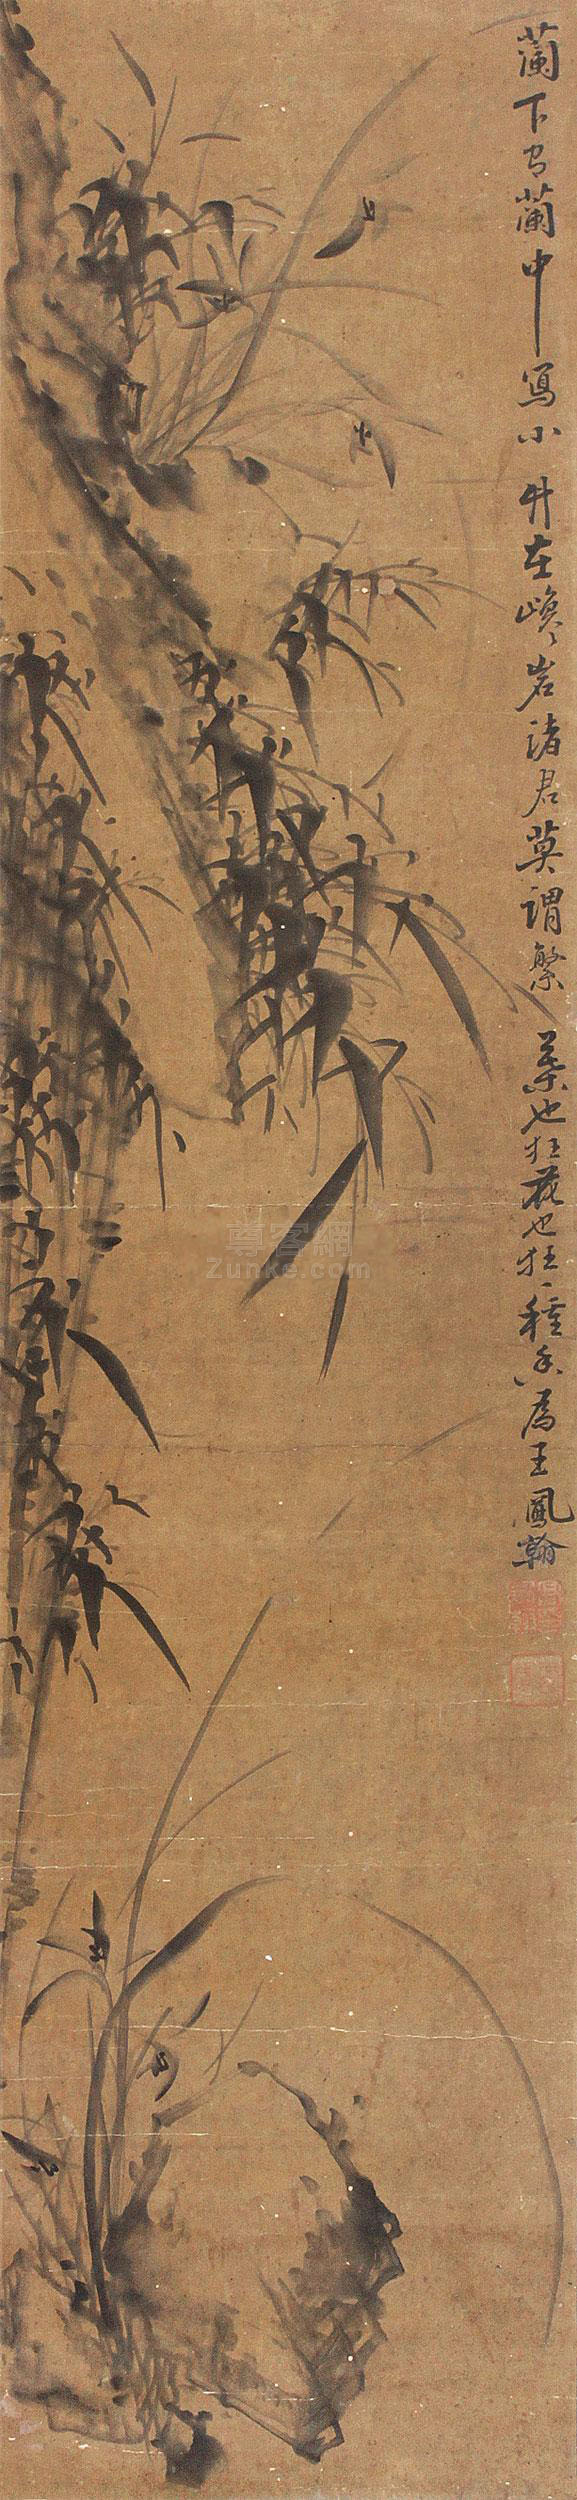 蘭下有蘭中寫小竹在巉巉岩諸君莫謂繁葉也狂花也狂一種香為王鳳翰
尊客網
Zunke.com